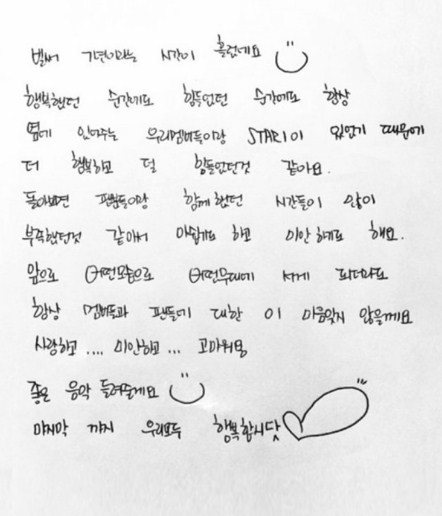 벌써 7년이라는 시간이 흘렀네요
행복했던 순간에도 힘들었던 순간에도 항상
옆에 있어주는 우리멤버들이랑 START이 있었기 때문에
더 행복하고 덜 힘들었던것 같아요.
돌아보면 팬분들이랑 함께했던 시간들이 많이
부족했던것 같아서 아쉽기도 하고 미안하기도 해요.
앞으로 어떤모습으로 어떤무대에 서게 되더라도
항상 멤버들과 팬들에 대한 이 마음잊지 않을께요
사랑하고 .... 미안하고 ... 고마워요
좋은 음악 들려줄게요
마지막 까지 우리모두 행복합시닷